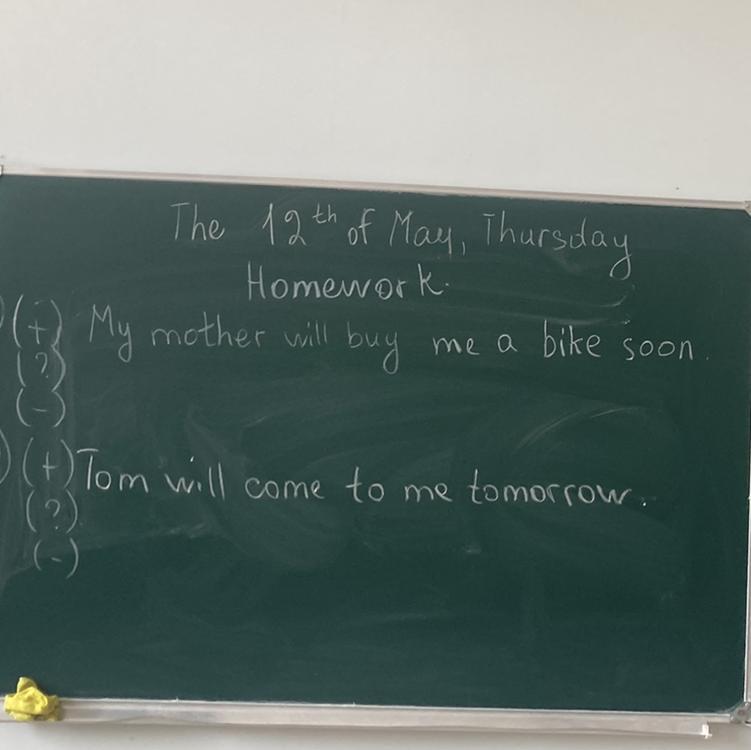 The 12th of May, Thursday
Homework.
) (+) My mother will buy me a bike soon.
(?)
(-)
) (+) Tom will come to me tomorrow.
(?)
(-)